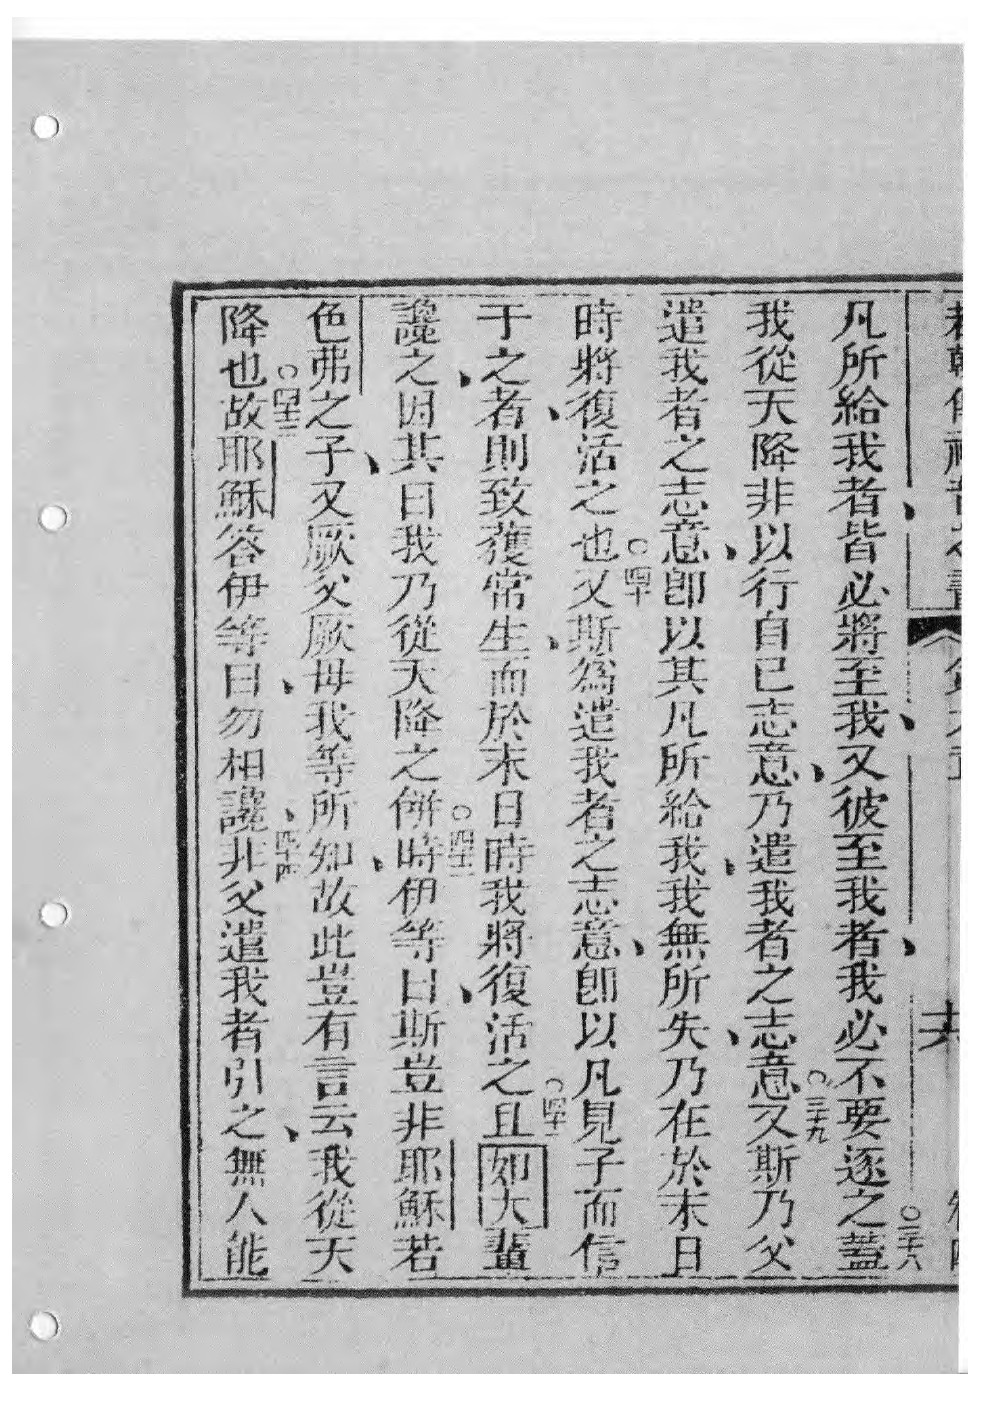 凡所給我者、皆必將至我、又彼至我者、我必不要逐之○三十八蓋
我從天降非以行自己志意、乃遣我者之志意○三十九又斯乃父
遣我者之志意、即以其凡所給我、我無所失、乃在於末日
時將復活之也○四十又斯為遣我者之志意、即以凡見子而信
于之者、則致獲常生、而於末日時我將復活之○四十一且如大輩
讒之、因其曰我乃從天降之餅○四十二時伊等曰、斯豈非耶穌若
色弗之子、又厥父厥母我等所知、故此豈有言云我從天
降也○四十三故耶穌答伊等曰、勿相讒、四十四非父遣我者引之、無人能